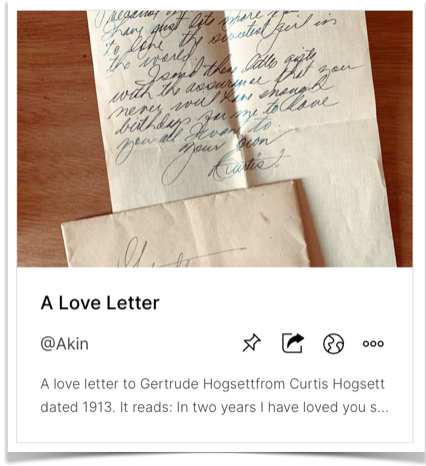 have just lots more
to love the sweetest girl in
the world.
I send these little gifts
with the assurance that you
never will have enough
birthdays for me to love
you all I want to.
your own
Curtis.
A Love Letter
@Akin
A love letter to Gertrude Hogsettfrom Curtis Hogsett
dated 1913. It reads: In two years I have loved you s...